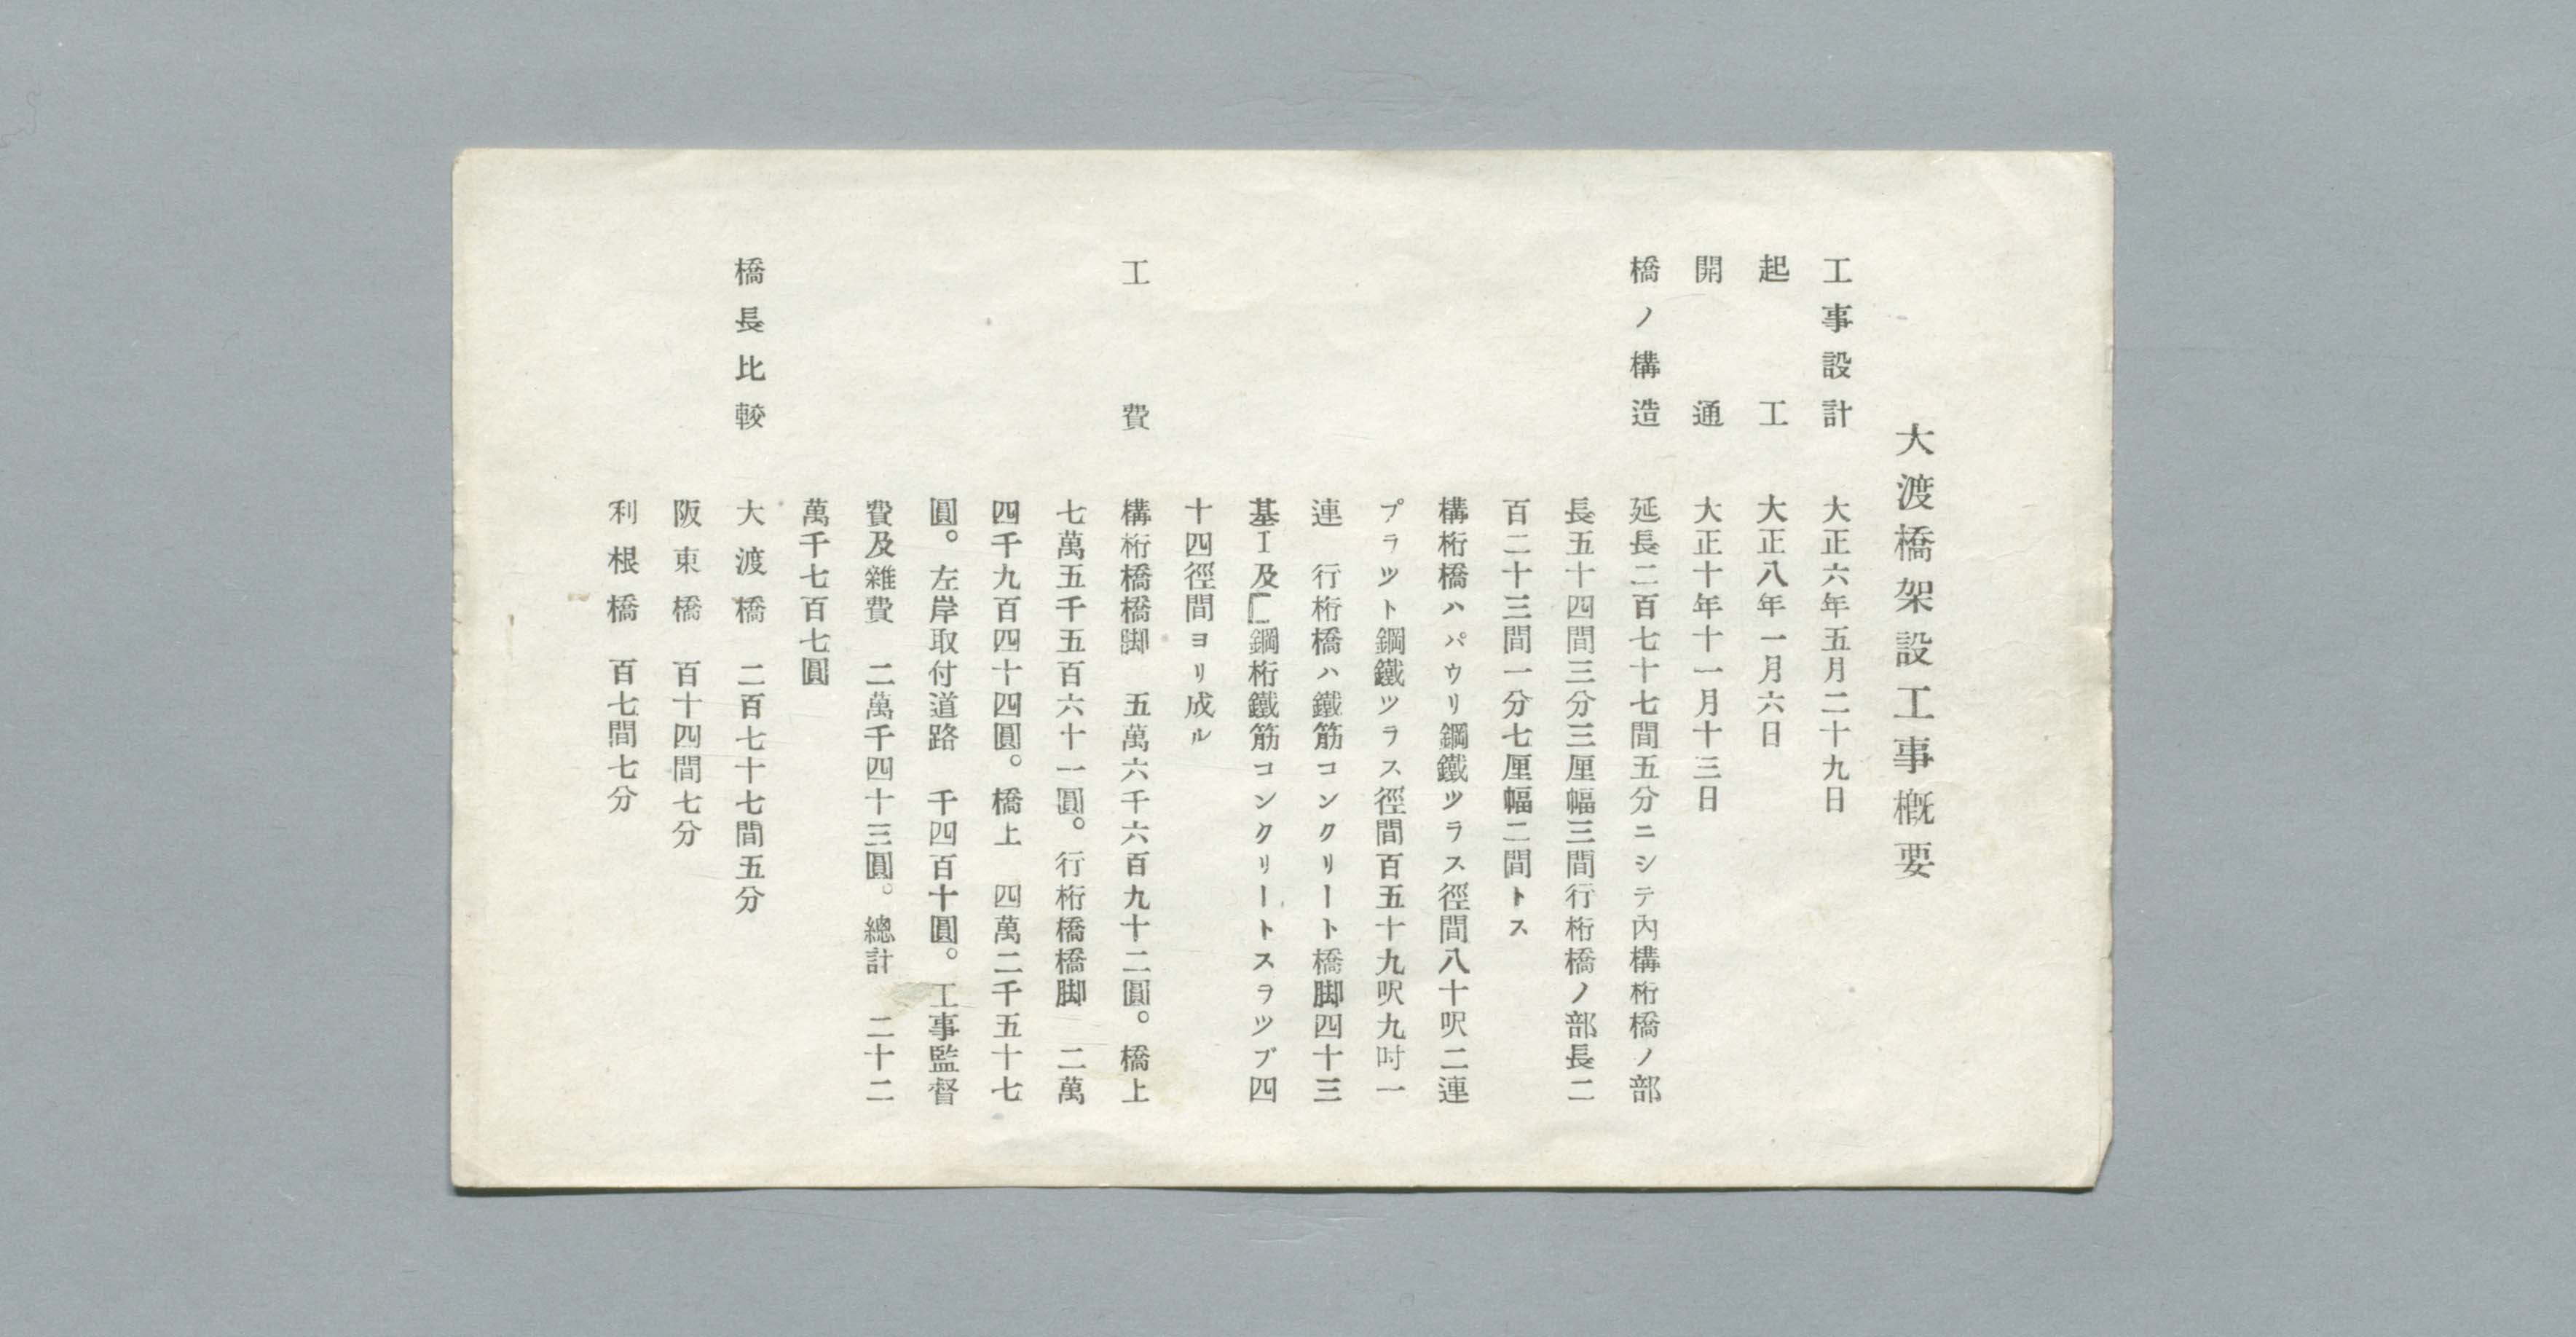 大渡橋架設工事概要
工事設計 大正六年五月二十九日
起工 大正八年一月六日
開通 大正十年十一月十三日
橋ノ構造 延長二百七十七間五分ニシテ內構桁橋ノ部
長五十四間三分三厘幅三間行桁橋ノ部長二
百二十三間一分七厘幅二間トス
構桁橋ハパウリ鋼鐵ツラス徑間八十呎二連
プラツト鋼鐵ツラス徑間百五十九呎九吋一
連 行桁橋ハ鐵筋コンクリート橋脚四十三
基I及匚鋼桁鐵筋コンクリートスラツブ四
十四徑間ヨリ成ル
工費 構桁橋橋脚 五萬六千六百九十二圓。橋上
七萬五千五百六十一圓。行桁橋橋脚 二萬
四千九百四十四圓。橋上 四萬二千五十七
圓。左岸取付道路 千四百十圓。工事監督
費及雜費 二萬千四十三圓。總計 二十二
萬千七百七圓
橋長比較 大渡橋 二百七十七間五分
阪東橋 百十四間七分
利根橋 百七間七分